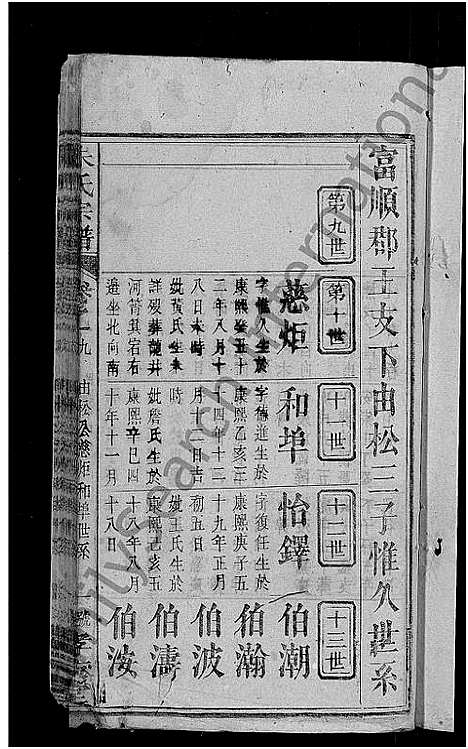 富順郡王支下由松三子惟久世系
第九世
第十世
十一世
十二世
十三世
慈炬
字惟久生於
康熙癸五十
二年八月十
八日未時
妣黃氏生未
詳歿葬龍井
河箐箕宕右
邊坐北向南
和埠
字德進生於
康熙乙亥三
十四年十二
月十二日吉
時
妣詹氏生於
康熙辛巳四
十年十一月
怡鐸
字復任生於
康熙庚子五
十九年正月
初五日
妣王氏生於
康熙己亥五
十八年八月
十八日
伯潮
伯瀚
伯波
伯濤
伯汝
朱氏宗譜
由松公慈炬和埠世系